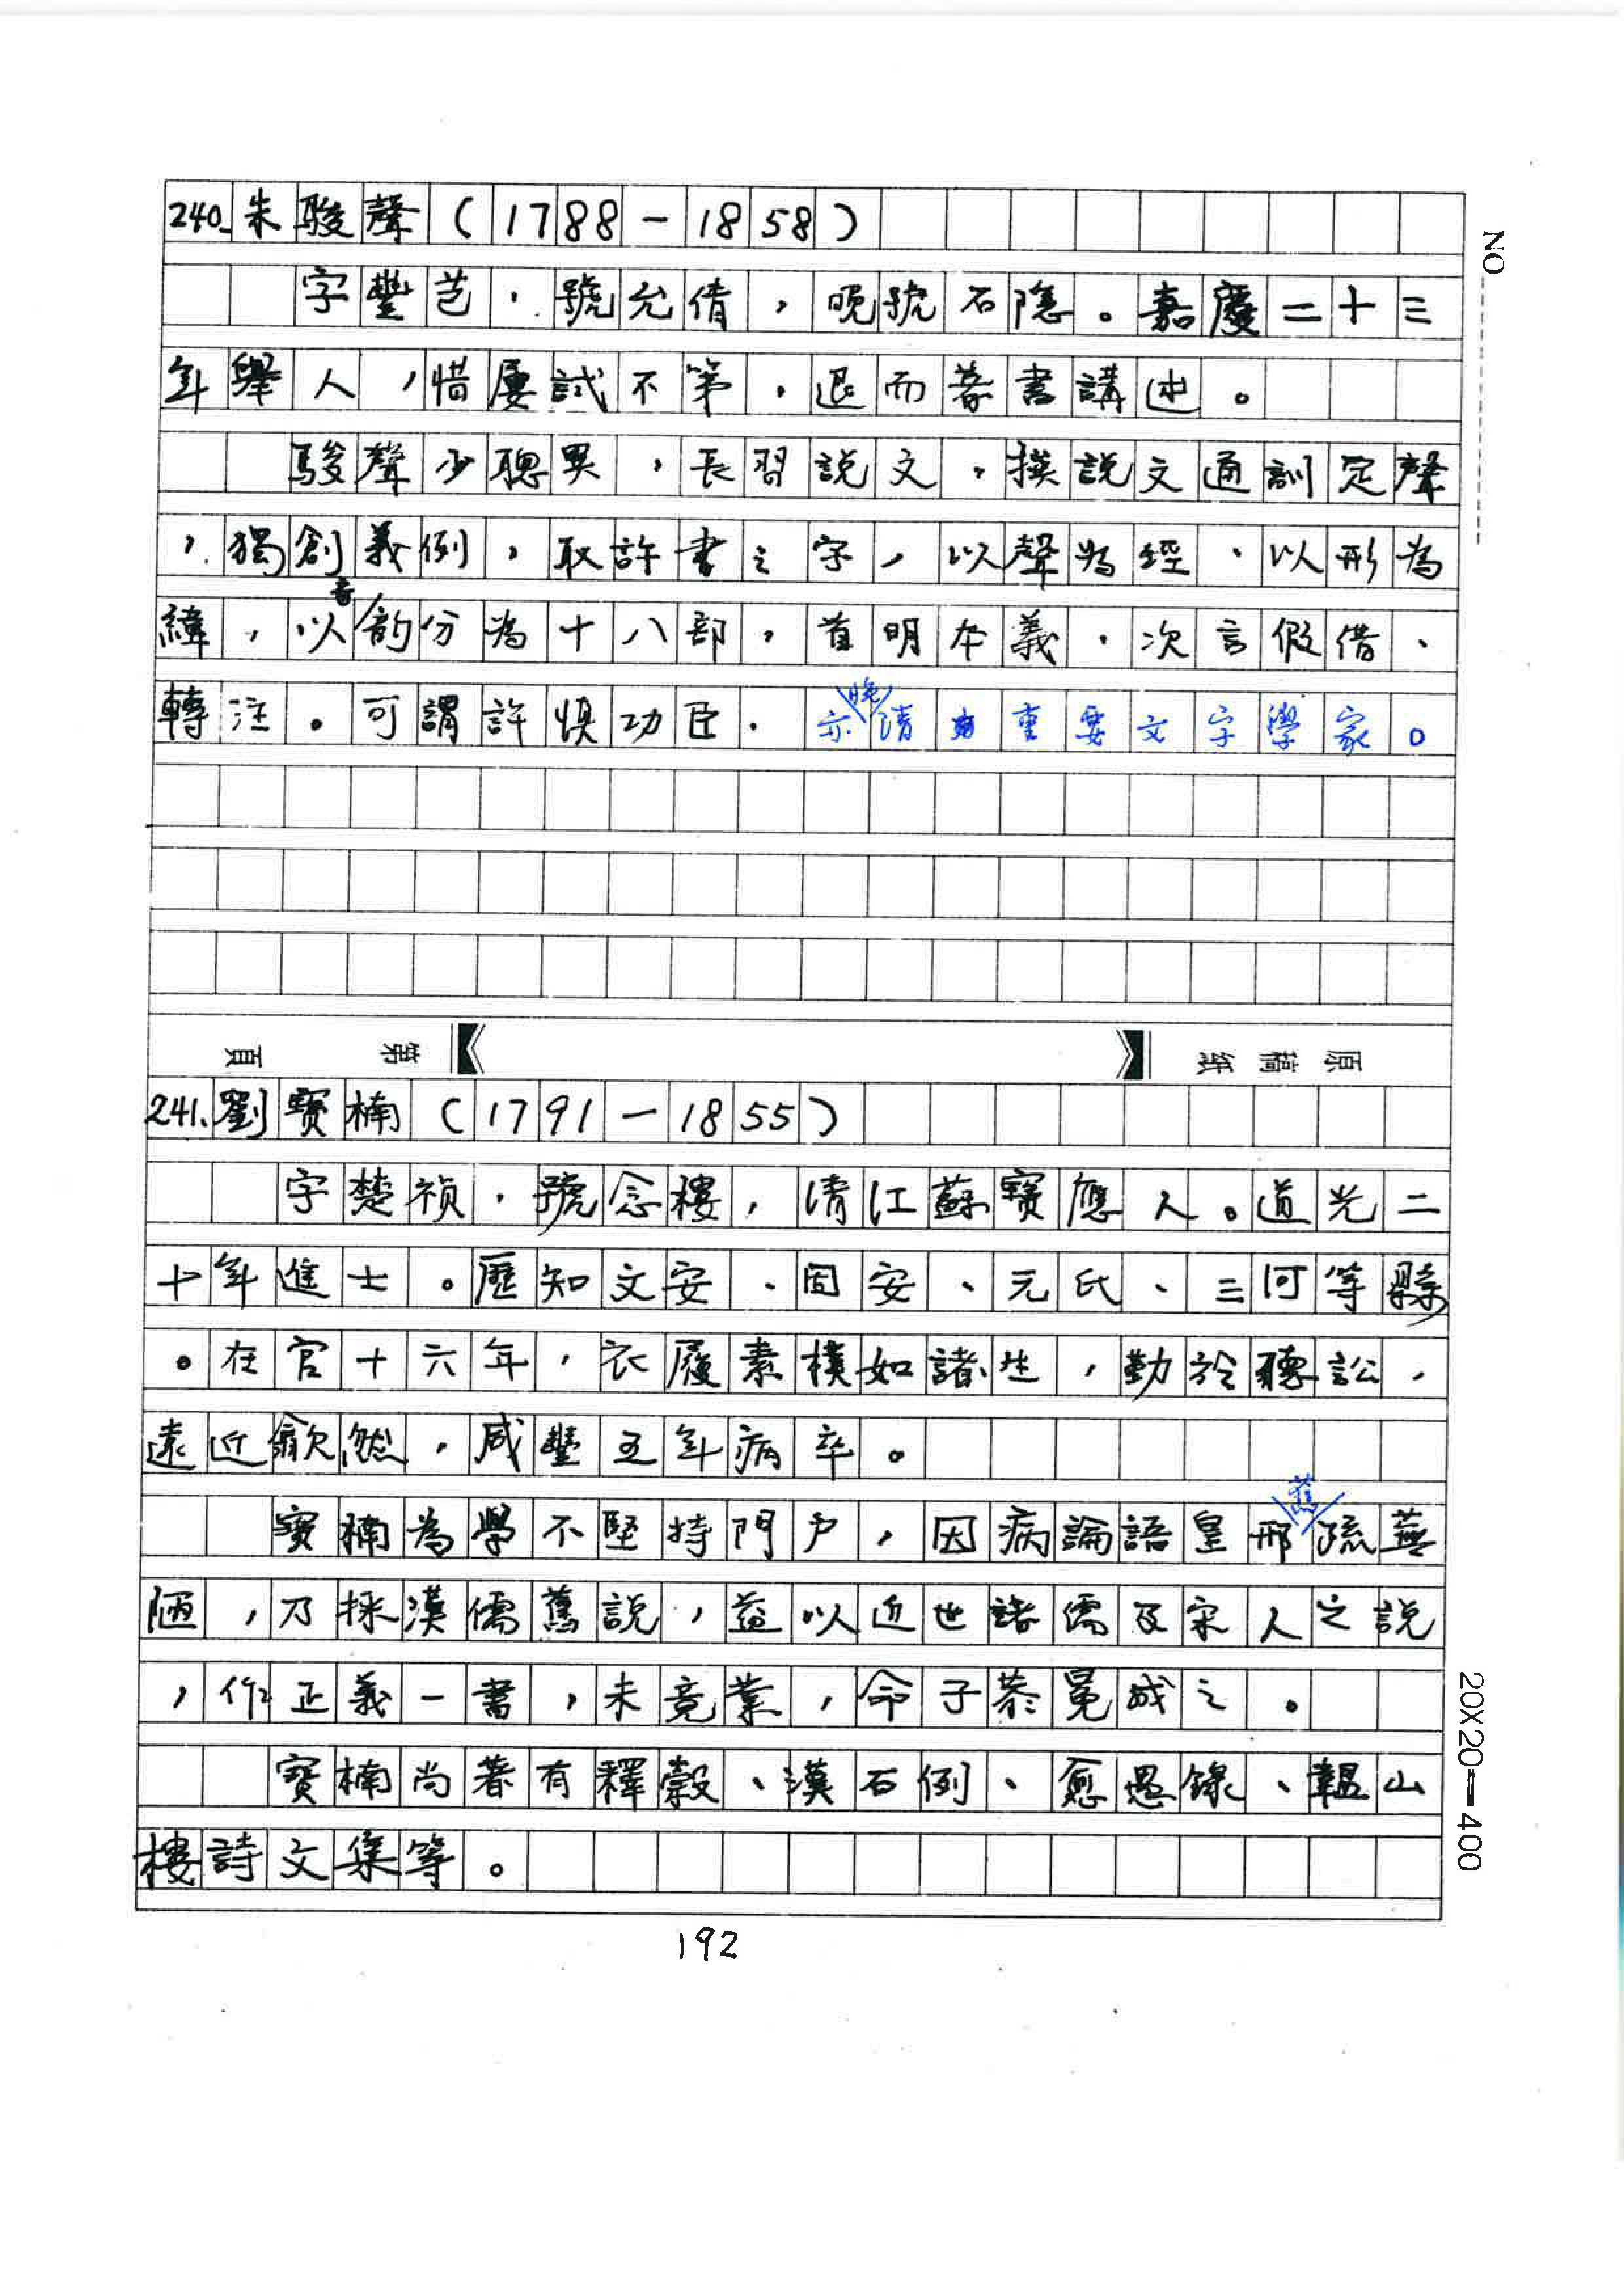 240.朱駿聲(1788-1858)
NO
字豐芑，號允倩，晚號石隱。嘉慶二十三
年舉人，惜屢試不第，退而著書講述。
駿聲少聰異，長習說文，撰說文通訓定聲
，獨創義例，取許書之字，以聲為經，以形為
緯，以音韵分為十八部，首明本義，次言假借、
轉注。可謂許慎功臣，亦晚清重要文字學家。
頁 第 原稿紙
241.劉寶楠(1791-1855)
字楚禎，號念樓，清江蘇寶應人。道光二
十年進士。歷知文安、固安、元氏、三河等縣
。在官十六年，衣履素樸如諸生，勤於聽訟，
遠近歙然，咸豐五年病卒。
寶楠為學不堅持門戶，因病論語皇邢舊疏蕪
陋，乃採漢儒舊說，益以近世諸儒及宋人之說
，作正義一書，未竟業，命子恭冕成之。
寶楠尚著有釋穀、漢石例、愈愚錄、韞山
樓詩文集等。
20X20=400
192